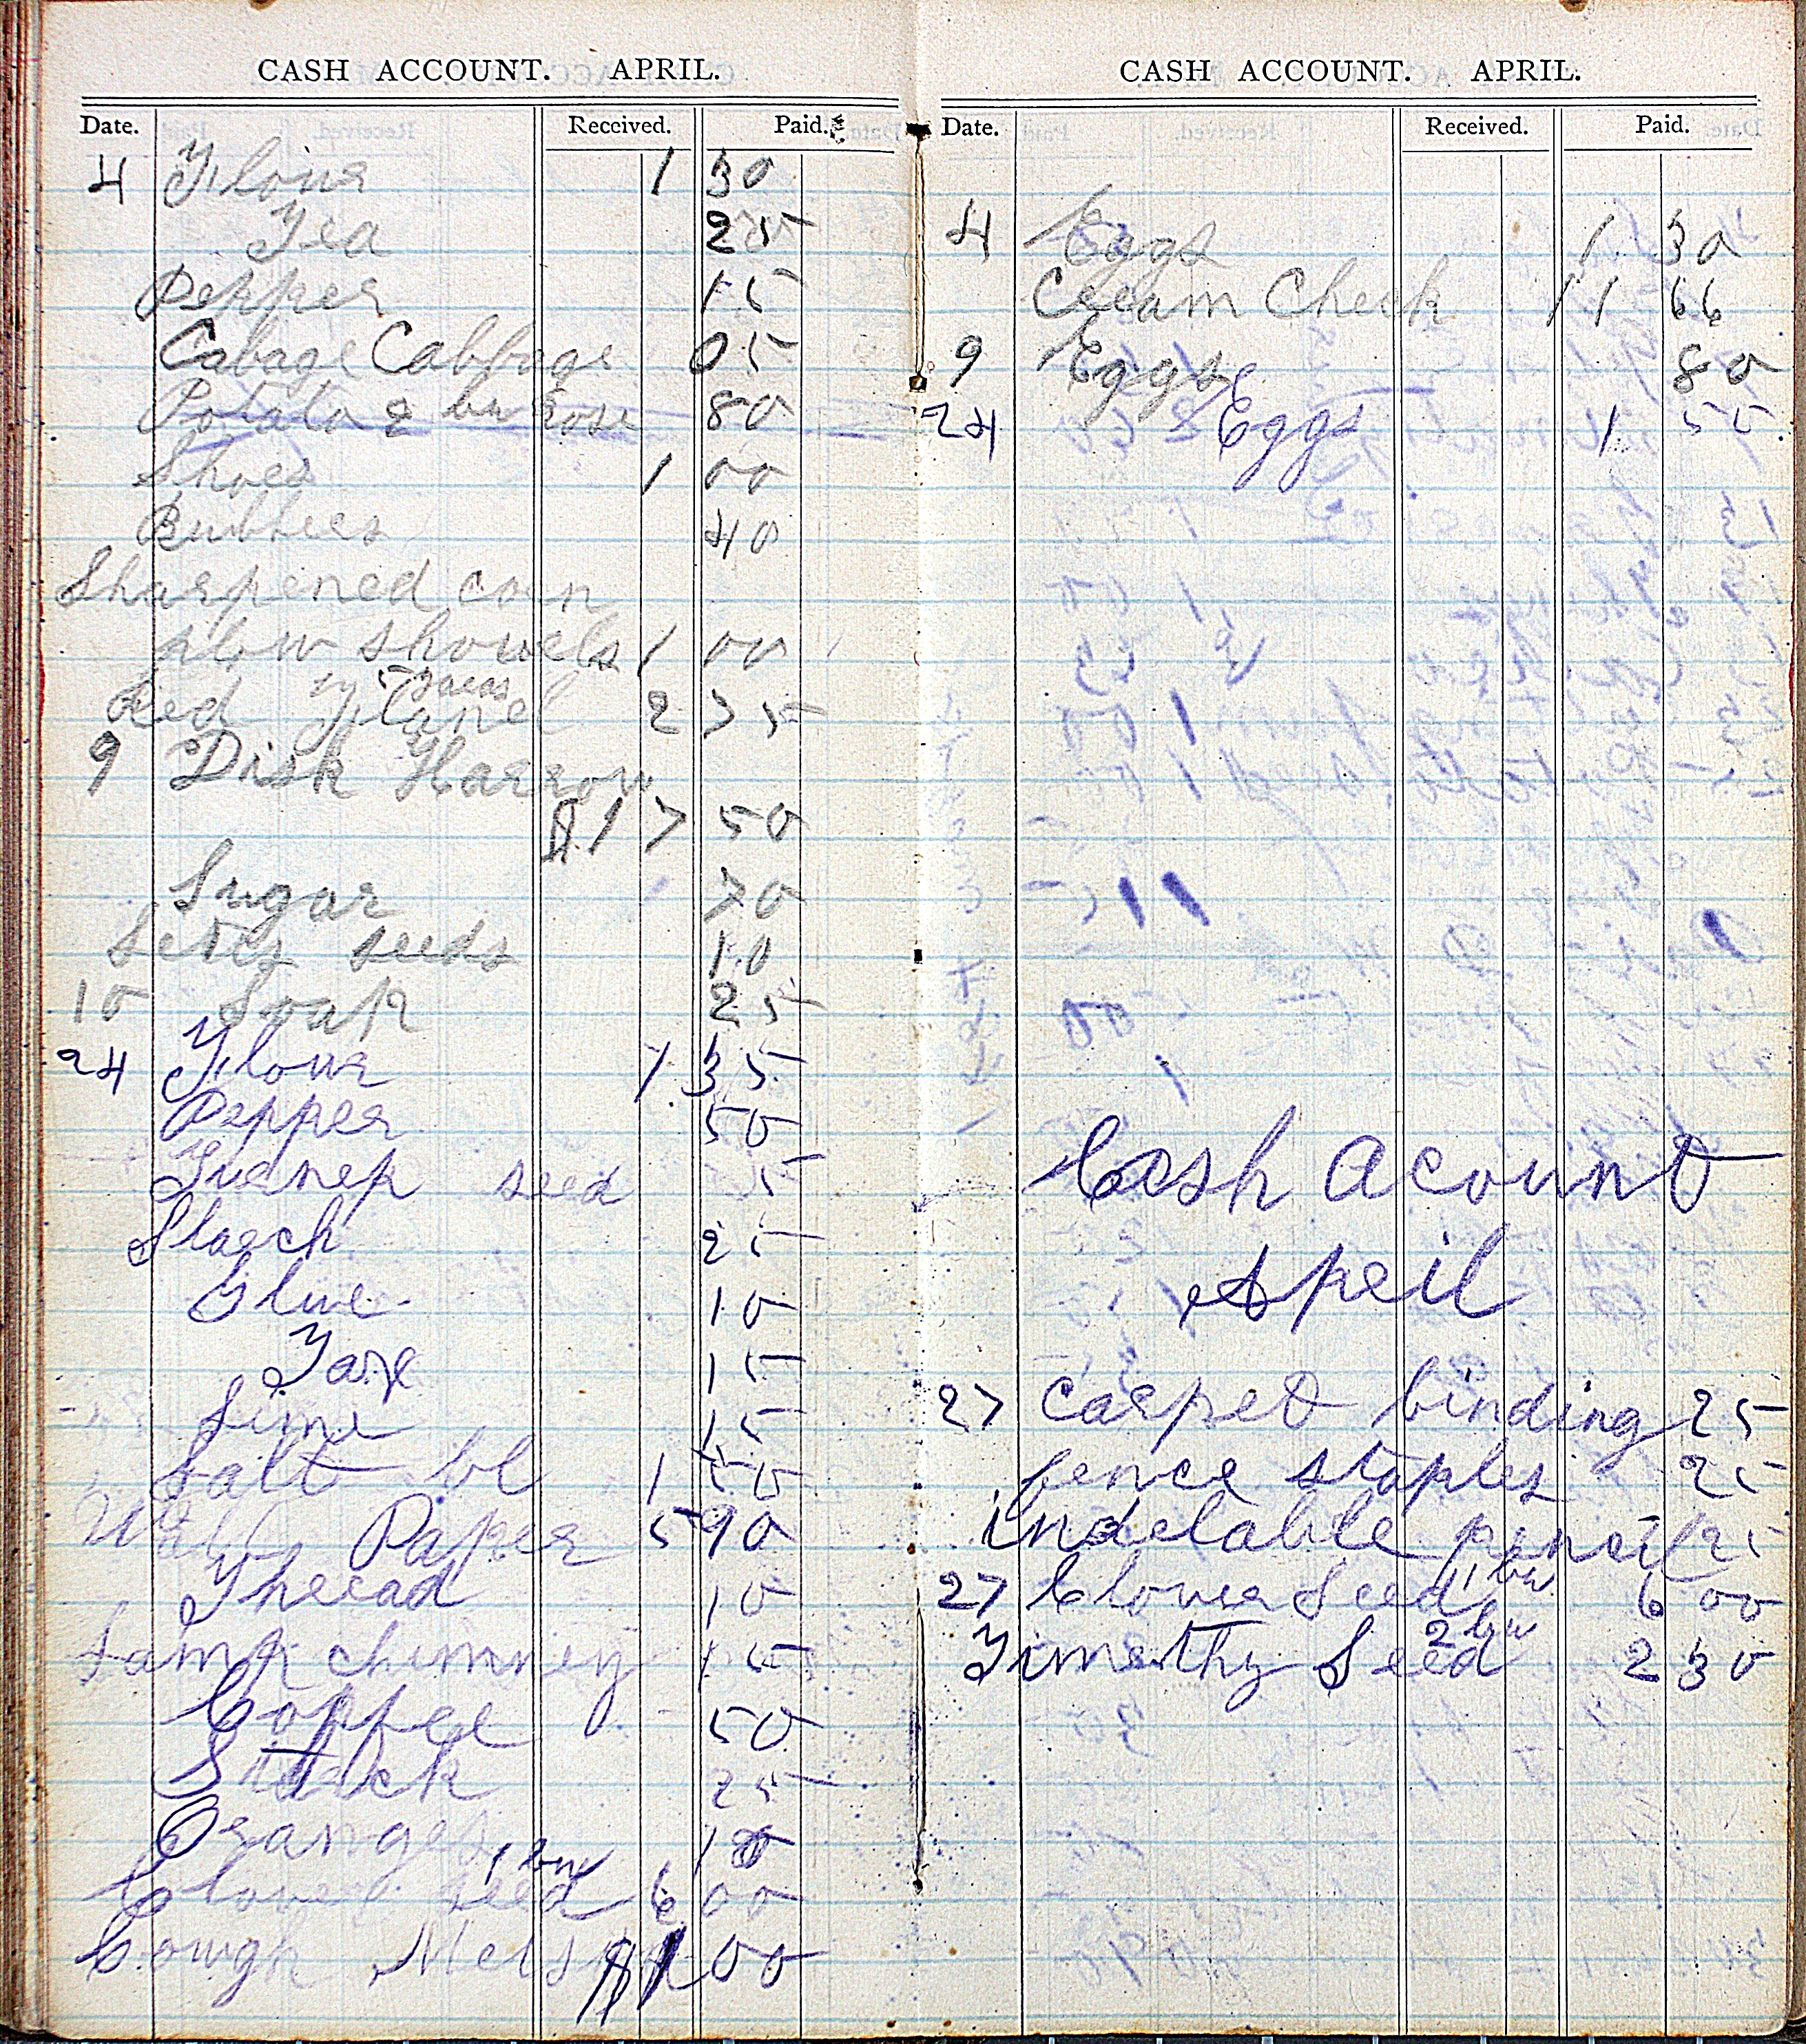 CASH ACCOUNT. APRIL.
Date. Received. Paid.
4 Flour 1 30
Tea 25
Pepper 15
Cabage Cabbage 05
Potato 2 bu Rose 80
Shoes 1 00
Rubbers 40
Sharpened corn
plow shovels 1 00
Red Flanel 2 75
9 Disk Harrow
$17 50
Sugar 70
seeds 10
10 Soap 25
24 Flour 1 35
Pepper 50
Turnep seed 5
Starch 25
Glue 10
15
Lime 15
Salt bl 1 50
Wall Paper 5 90
Thread 10
Lamp chimney 15
Coffee 50
25
Oranges 10
Clover seed 1 bu 6 00
Cough $1 00
CASH ACCOUNT. APRIL.
Date. Received. Paid.
4 Eggs 1 30
Cream Check 11 66
9 Eggs 80
24 Eggs 1 55
Cash Acount
April
27 Carpet binding 25
fence staples 25
indelable pencil 25
27 Clover Seed 1 bu 6 00
Timothy Seed 2 bu 2 30